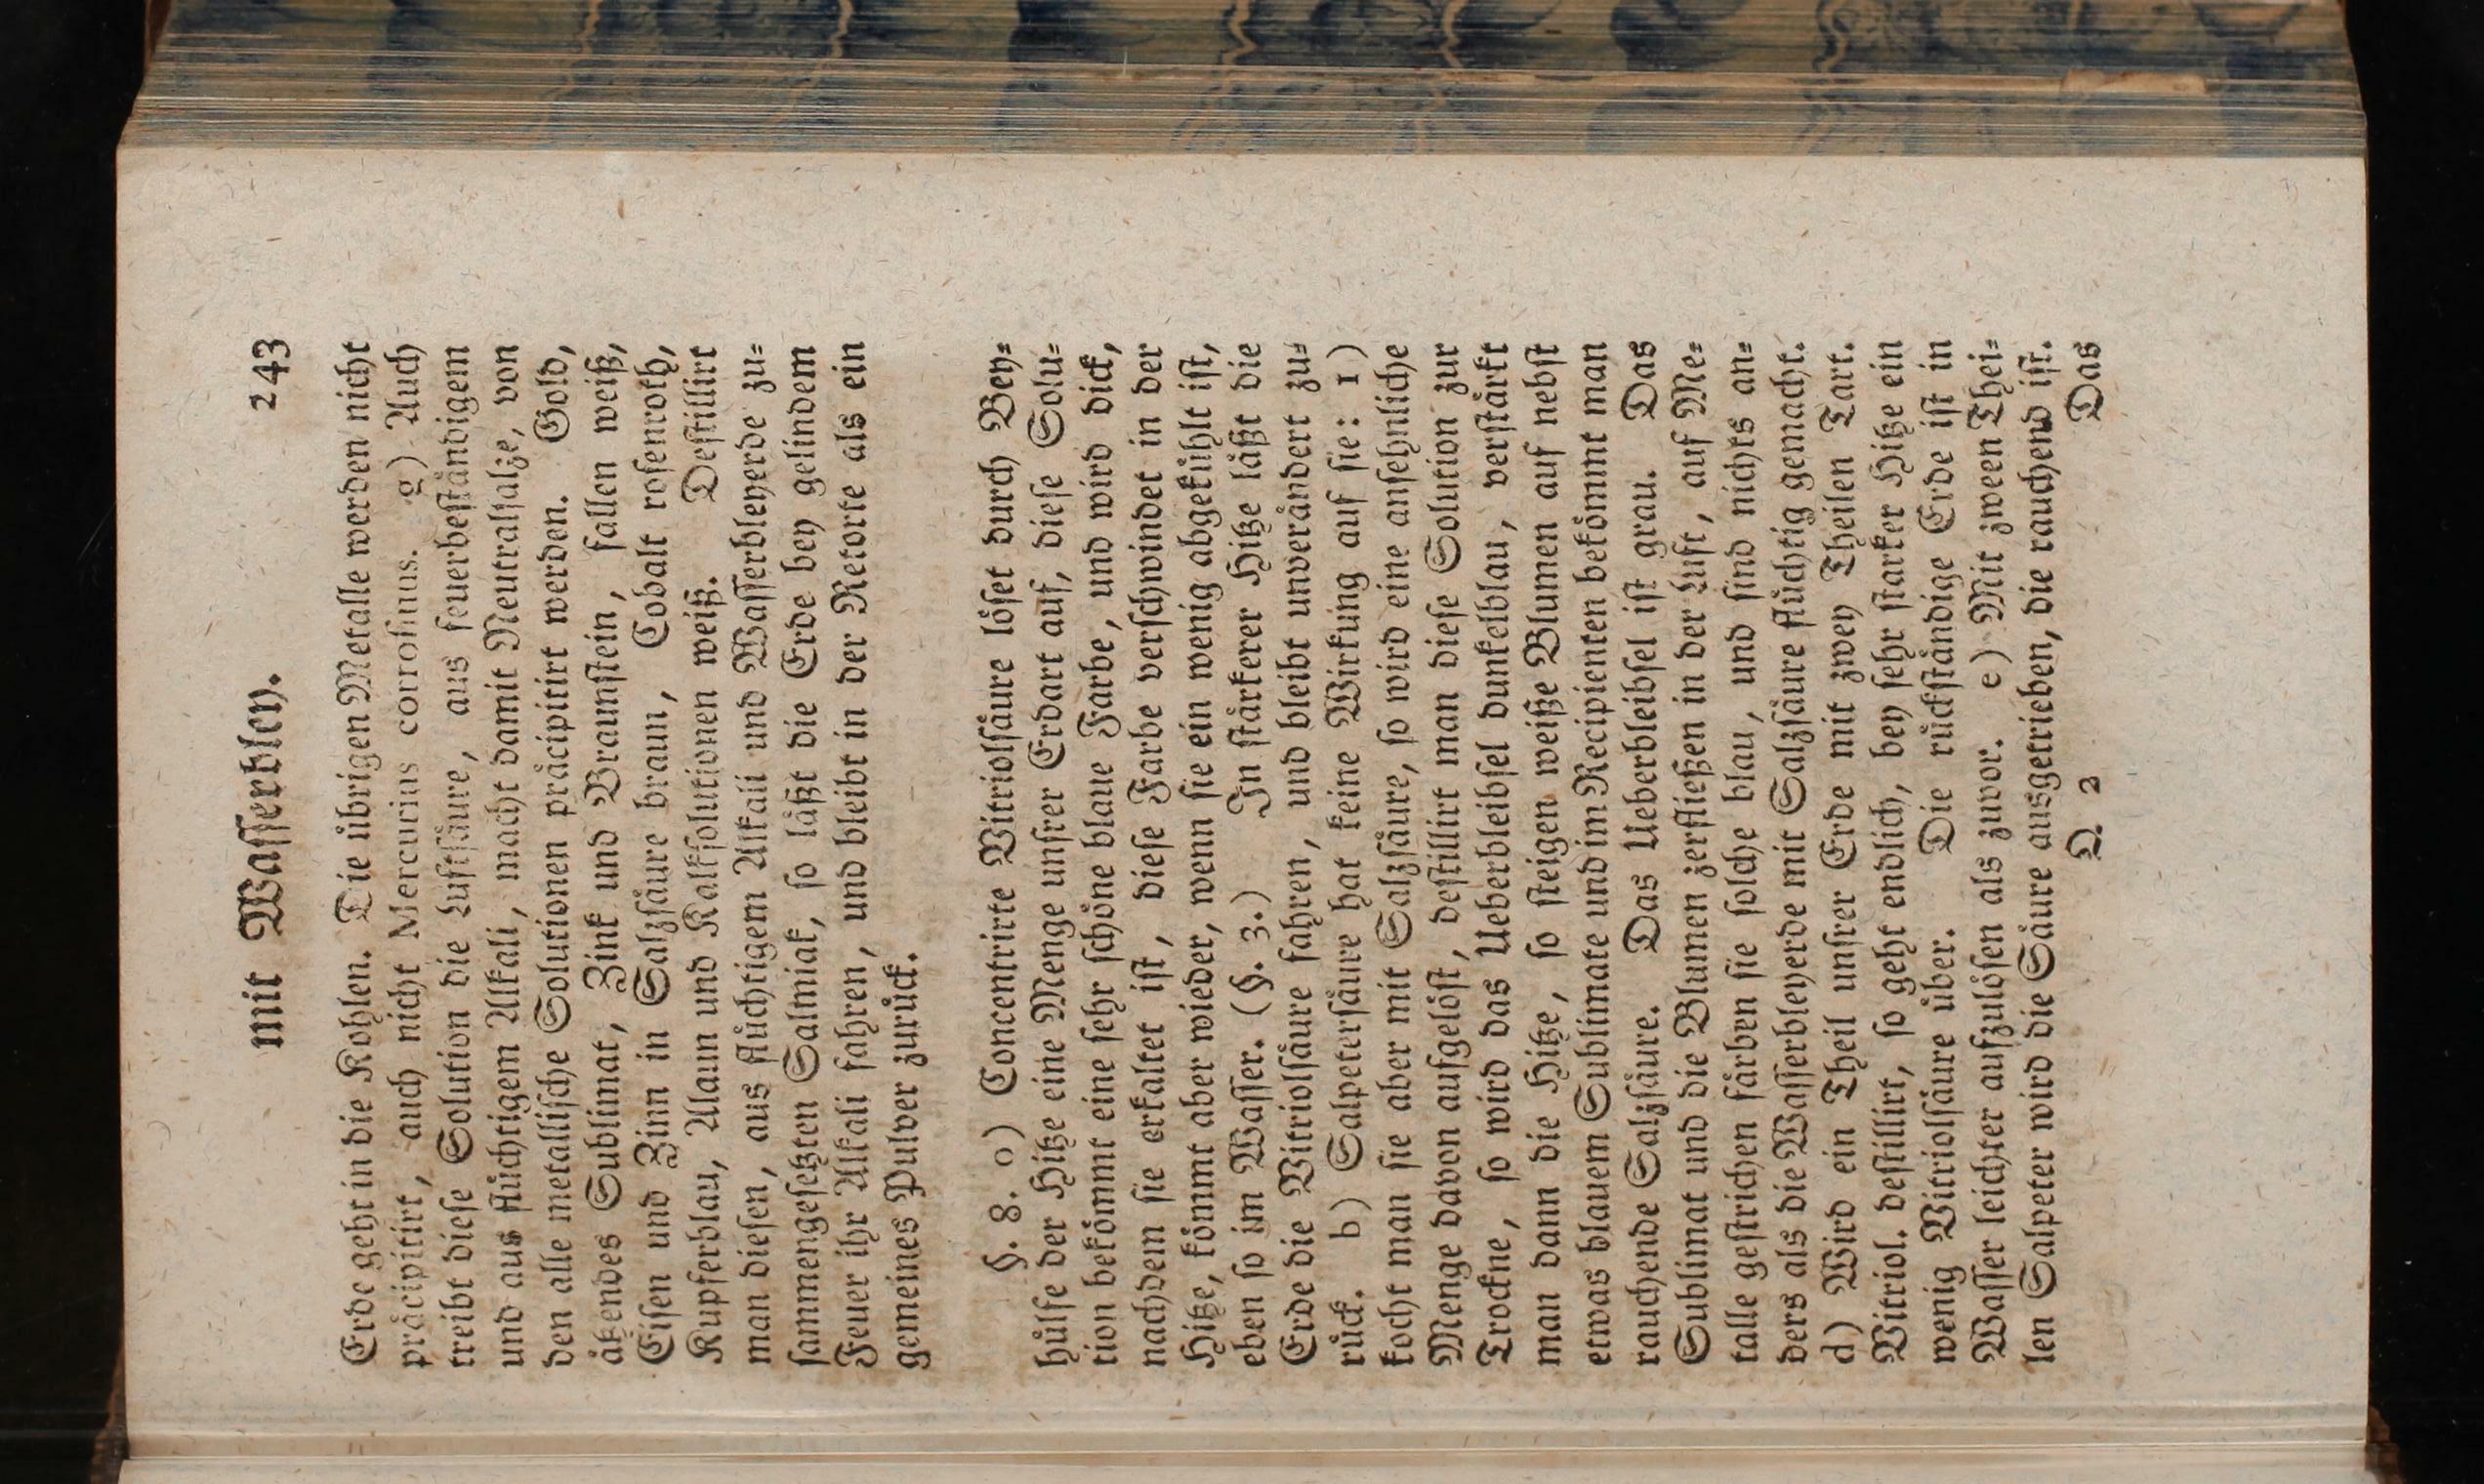 mit Waſſerbley. 243
Erde geht in die Kohlen. Die uͤbrigen Metalle werden nicht
praͤcipitirt, auch nicht Mercurius corroſivus. g) Auch
treibt dieſe Solution die Luftſaͤure, aus feuerbeſtaͤndigem
und aus fluͤchtigem Alkali, macht damit Neutralſalze, von
den alle metalliſche Solutionen praͤcipitirt werden. Gold,
aͤtzendes Sublimat, Zink und Braunſtein, fallen weiß,
Eiſen und Zinn in Salzſaͤure braun, Cobalt roſenroth,
Kupferblau, Alaun und Kalkſolutionen weiß. Deſtillirt
man dieſen, aus fluͤchtigem Alkali und Waſſerbleyerde zu⸗
ſammengeſetzten Salmiak, ſo laͤßt die Erde bey gelindem
Feuer ihr Alkali fahren, und bleibt in der Retorte als ein
gemeines Pulver zuruͤck.
§. 8. o) Concentrirte Vitriolſaͤure loͤſet durch Bey⸗
huͤlfe der Hitze eine Menge unſrer Erdart auf, dieſe Solu⸗
tion bekoͤmmt eine ſehr ſchoͤne blaue Farbe, und wird dick,
nachdem ſie erkaltet iſt, dieſe Farbe verſchwindet in der
Hitze, koͤmmt aber wieder, wenn ſie ein wenig abgekuͤhlt iſt,
eben ſo im Waſſer. (§. 3.) In ſtaͤrkerer Hitze laͤßt die
Erde die Vitriolſaͤure fahren, und bleibt unveraͤndert zu⸗
ruͤck. b) Salpeterſaͤure hat keine Wirkung auf ſie: 1)
kocht man ſie aber mit Salzſaͤure, ſo wird eine anſehnliche
Menge davon aufgeloͤſt, deſtillirt man dieſe Solution zur
Trockne, ſo wird das Ueberbleibſel dunkelblau, verſtaͤrkt
man dann die Hitze, ſo ſteigen weiße Blumen auf nebſt
etwas blauem Sublimate und im Recipienten bekoͤmmt man
rauchende Salzſaͤure. Das Ueberbleibſel iſt grau. Das
Sublimat und die Blumen zerfließen in der Luft, auf Me⸗
talle geſtrichen faͤrben ſie ſolche blau, und ſind nichts an⸗
ders als die Waſſerbleyerde mit Salzſaͤure fluͤchtig gemacht.
d) Wird ein Theil unſrer Erde mit zwey Theilen Tart.
Vitriol. deſtillirt, ſo geht endlich, bey ſehr ſtarker Hitze ein
wenig Vitriolſaͤure uͤber. Die ruͤckſtaͤndige Erde iſt in
Waſſer leichter aufzuloͤſen als zuvor. e) Mit zween Thei⸗
len Salpeter wird die Saͤure ausgetrieben, die rauchend iſt.
Q 2 Das